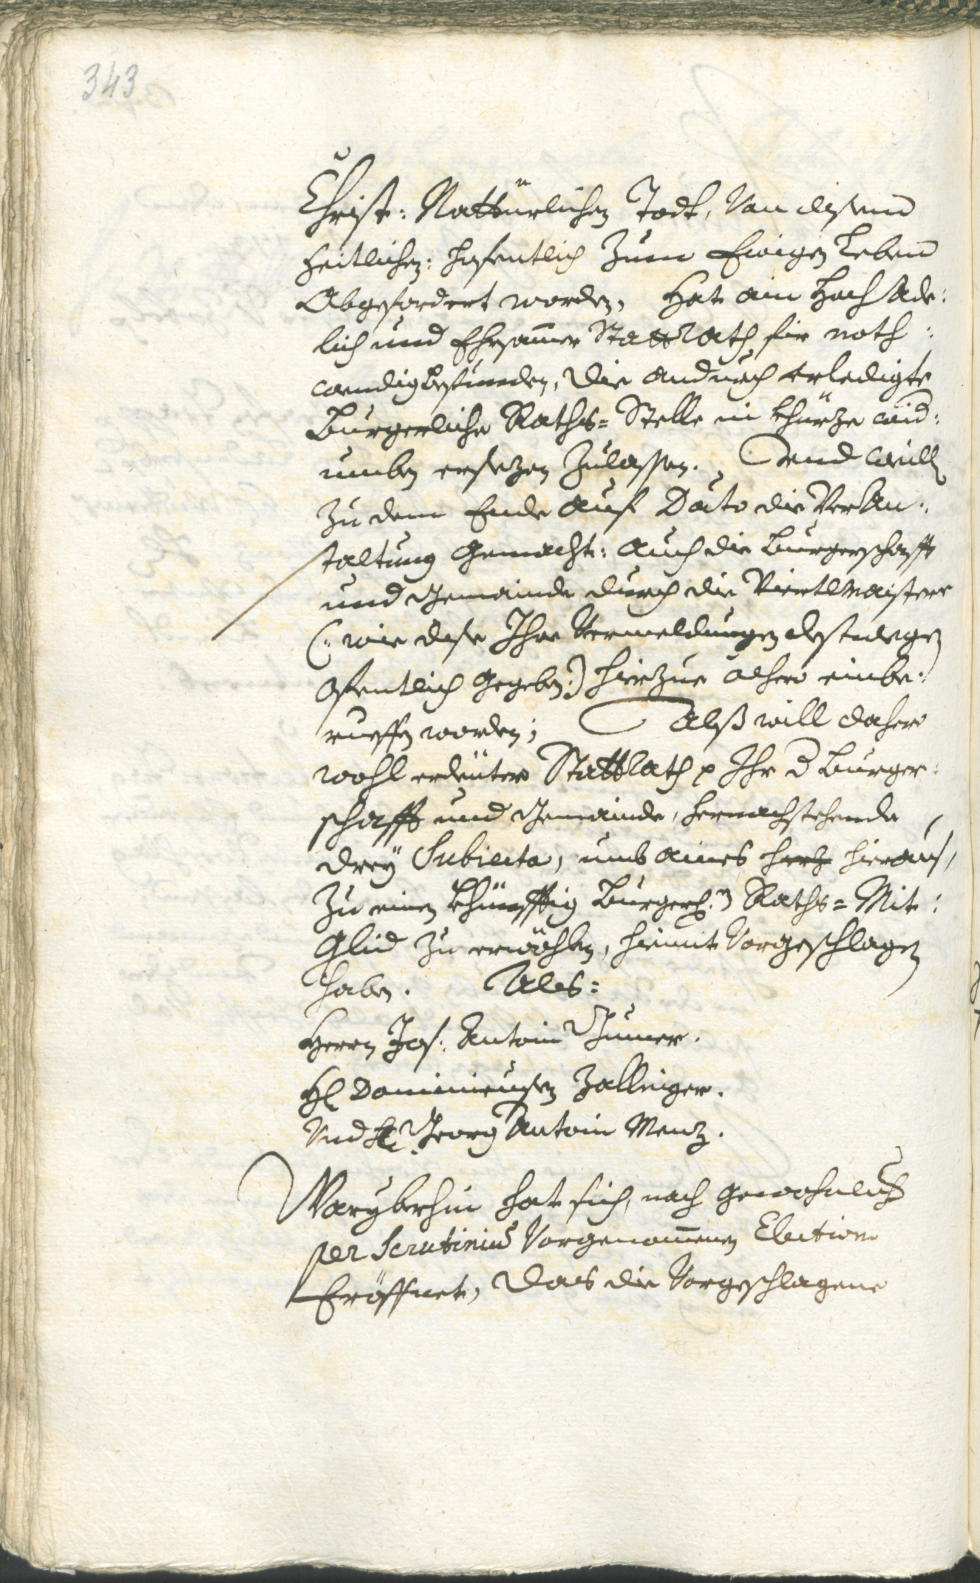 343
Christ: Nattürlichen Todt, Von disem
Zeitlichen: hofentlich Zum Ewigen Leben
Abgefordert worden, Hat ain Hoch Ade:
lich und Ehrsammer StattRath für noth:
wendig befunden, die anduech erledigte
Burgerliche Raths= Stelle in khürze wid:
umben ersezen Zulassen. Und weill
zu dem Ende auf Dato die Veran:
staltung gemacht: auch die Burgerschafft
und Gemainde durch die Viertlmaister
(: wie dise Ihre Vermeldungen destwegen
ofentlich gegeben:) hierzue alhero einbe:
rueffen worden; Alß will daher
wohl erdeüter StattRath p Ihr d Burger:
schafft und Gemainde, hernachstehende
drey Subiecta, umb aines hierauß,
Zu einen khünfftig Burgerl:n Raths= Mit:
Glid zu erwöhlen, hiemit Vorgeschlagen
haben. Als:
Herrn Jos: Antoni Thumer.
H: Dominicusen Zallinger.
Und H: Georg Antoni Menz.
Woryberhin hat sich, nach gewohnlich
per Scrutiniu Vorgenommenen Election
Eröffnet, das die Vorgeschlagene